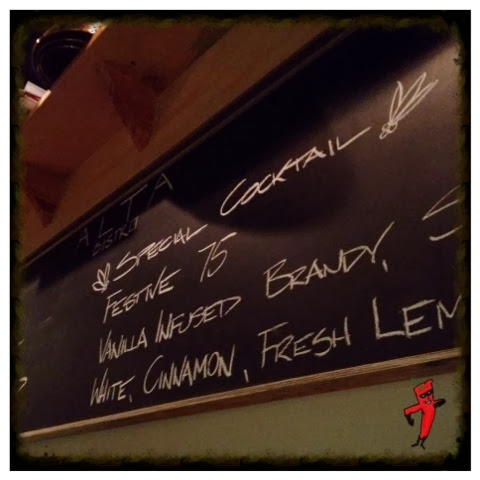 ALTA
BISTRO
SPECIAL COCKTAIL
FESTIVE 75
VANILLA INFUSED BRANDY, S
WHITE, CINNAMON, FRESH LEM